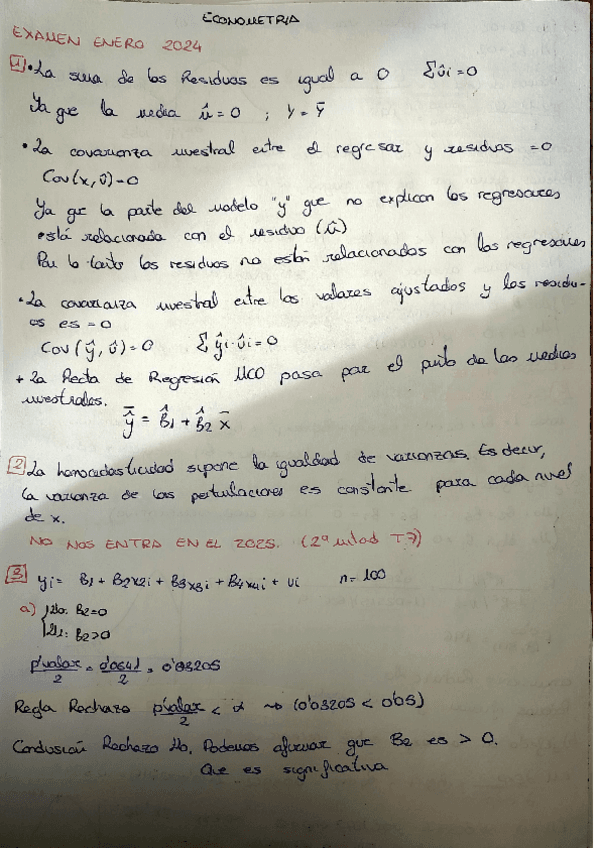 ECONOMETRIA
EXAMEN ENERO 2024
1 • La suma de los Residuos es igual a 0 Σûi = 0
Ya que la media û = 0 ; Y = Ȳ
• La covarianza muestral entre el regresor y residuos = 0
Cov(x, û) = 0
Ya que la parte del modelo "y" que no explican los regresores
está relacionada con el residuo (û)
Por lo tanto los residuos no están relacionados con los regresores
• La covarianza muestral entre los valores ajustados y los residu-
os es = 0
Cov(ŷ, û) = 0 Σ ŷi · ûi = 0
+ La Recta de Regresión MCO pasa por el punto de las medias
muestrales.
ŷ̄ = B̂1 + B̂2 x̄
2 La homocedasticidad supone la igualdad de varianzas. Es decir,
la varianza de las perturbaciones es constante para cada nivel
de x.
NO NOS ENTRA EN EL 2025. (2ª mitad T7)
3 yi = B1 + B2x2i + B3x3i + B4x4i + ui n = 100
a) Ho: B2 = 0
H1: B2 > 0
p'valor/2 = 0'0641/2 = 0'03205
Regla Rechazo p'valor/2 < α ~> (0'03205 < 0'05)
Conclusión Rechazo Ho. Podemos afirmar que B2 es > 0.
Que es significativa